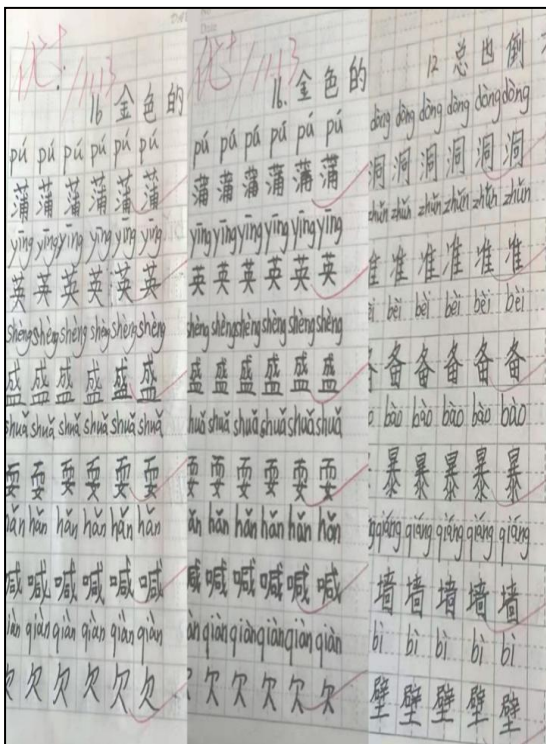 优+ 11.13
16 金色的
pú pú pú pú pú pú
蒲 蒲 蒲 蒲 蒲 蒲
yīng yīng yīng yīng yīng yīng
英 英 英 英 英 英
shèng shèng shèng shèng shèng shèng
盛 盛 盛 盛 盛 盛
shuǎ shuǎ shuǎ shuǎ shuǎ shuǎ
耍 耍 耍 耍 耍 耍
hǎn hǎn hǎn hǎn hǎn hǎn
喊 喊 喊 喊 喊 喊
iàn qiàn qiàn qiàn qiàn qiàn
欠 欠 欠 欠 欠 欠
优+ 11.13
16. 金色的
pú pú pú pú pú pú
蒲 蒲 蒲 蒲 蒲 蒲
yīng yīng yīng yīng yīng yīng
英 英 英 英 英 英
shèng shèng shèng shèng shèng shèng
盛 盛 盛 盛 盛 盛
huǎ shuǎ shuǎ shuǎ shuǎ shuǎ
耍 耍 耍 耍 耍 耍
ǎn hǎn hǎn hǎn hǎn hǎn
喊 喊 喊 喊 喊 喊
àn qiàn qiàn qiàn qiàn qiàn
欠 欠 欠 欠 欠
12 总也倒
dòng dòng dòng dòng dòng dòng
洞 洞 洞 洞 洞 洞
zhǔn zhǔn zhǔn zhǔn zhǔn zhǔn
准 准 准 准 准 准
bèi bèi bèi bèi bèi
备 备 备 备 备 备
bào bào bào bào bào
暴 暴 暴 暴 暴
qiáng qiáng qiáng qiáng qiáng
墙 墙 墙 墙 墙
bì bì bì bì bì
壁 壁 壁 壁 壁